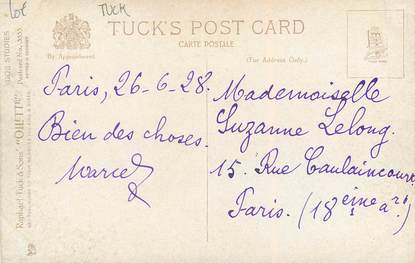 60€
TUCK
TUCK'S POST CARD
CARTE POSTALE
By Appointment.
(For Address Only.)
Raphael Tuck & Sons' "OILETTE"
Postcard No. 3355
DOG STUDIES
Paris, 26-6-28.
Bien des choses.
Marcel
Mademoiselle
Suzanne Lelong.
15. Rue Caulaincourt
Paris. (18eime ar.)